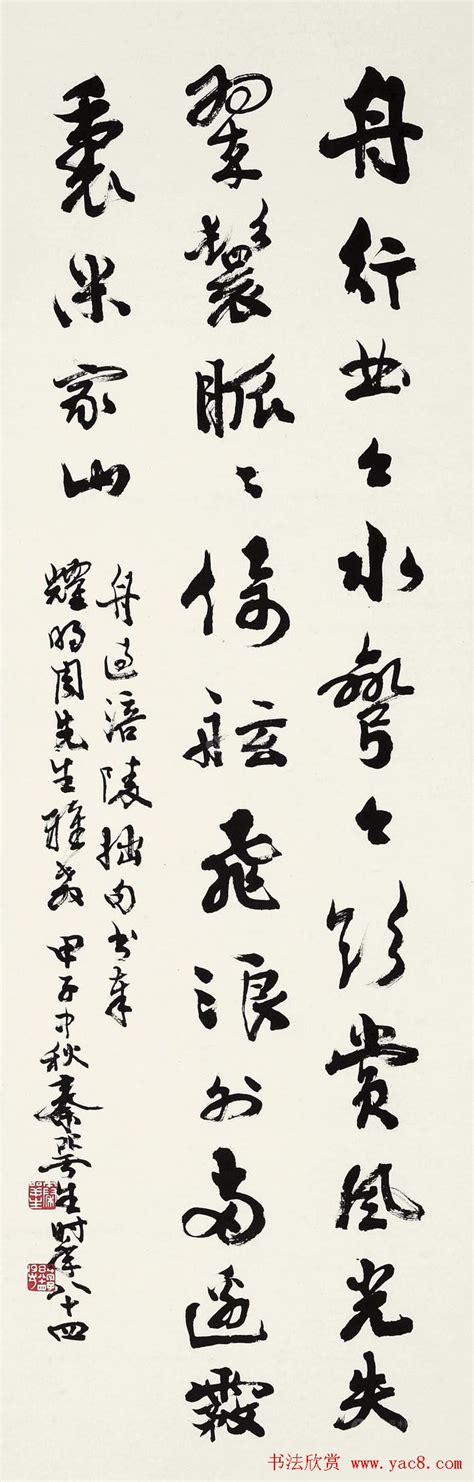 舟行曲々水彎々欣賞風光失
翠鬟眽々倚舷飛浪外兩邊霧
裏米家山
舟過涪陵拙句書奉
耀明周先生雅教 甲子中秋秦咢生時年八十四
书法欣赏 www.yac8.com